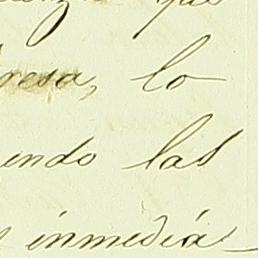 que
resa, lo
endo las
inmedia-